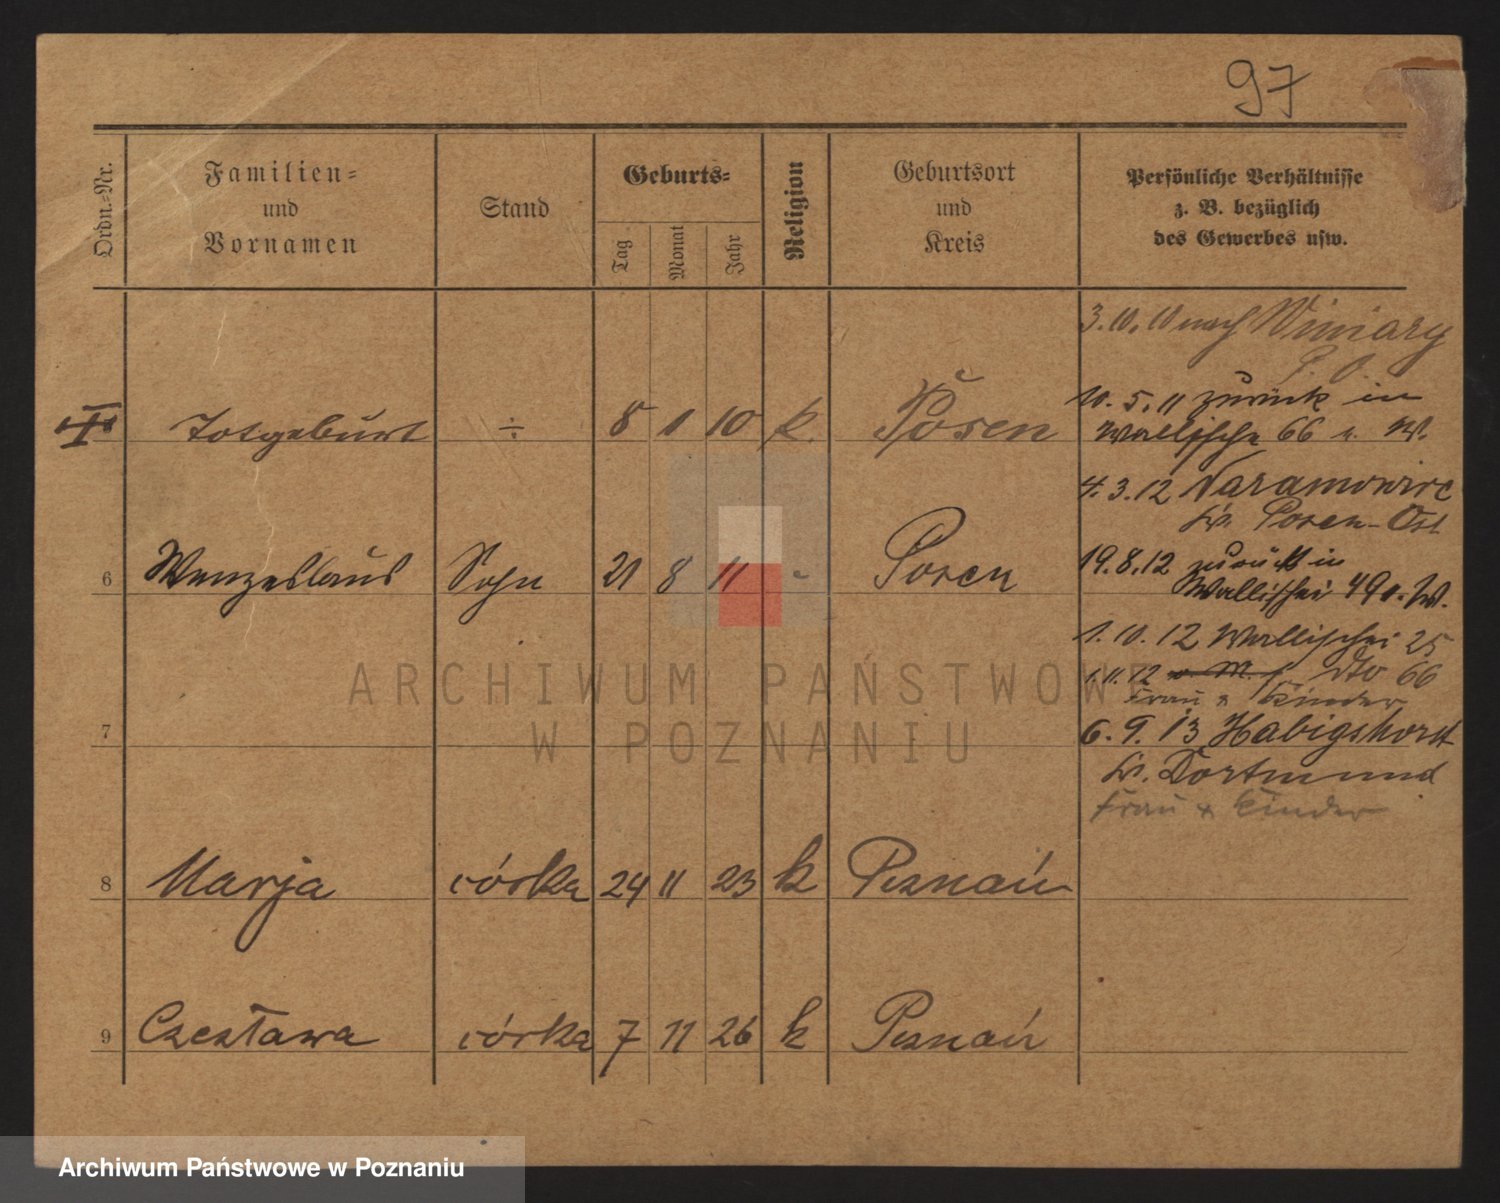 97
Ordn.-Nr.
Familien-
und
Vornamen
Stand
Geburts-
Tag
Monat
Jahr
Religion
Geburtsort
und
Kreis
Persönliche Verhältnisse
z. B. bezüglich
des Gewerbes usw.
3.10.10 nach Winiary
P. O.
Totgeburt ÷ 8 1 10 k. Posen
10.5.11 zurück in
Wallischei 66 u. W.
4.3.12 Naramowice
Kr. Posen-Ost
6 Wenzeslaus Sohn 21 8 11 - Posen
19.8.12 zurück in
Wallischei 49 u. W.
1.10.12 Wallischei 25
1.11.12 dto 66
Frau & Kinder
7
6.9.13 Habigshorst
Kr. Dortmund
Frau & Kinder
8 Marja córka 24 11 23 k Poznań
9 Czesława córka 7 11 26 k Poznań
ARCHIWUM PAŃSTWOWE
W POZNANIU
Archiwum Państwowe w Poznaniu